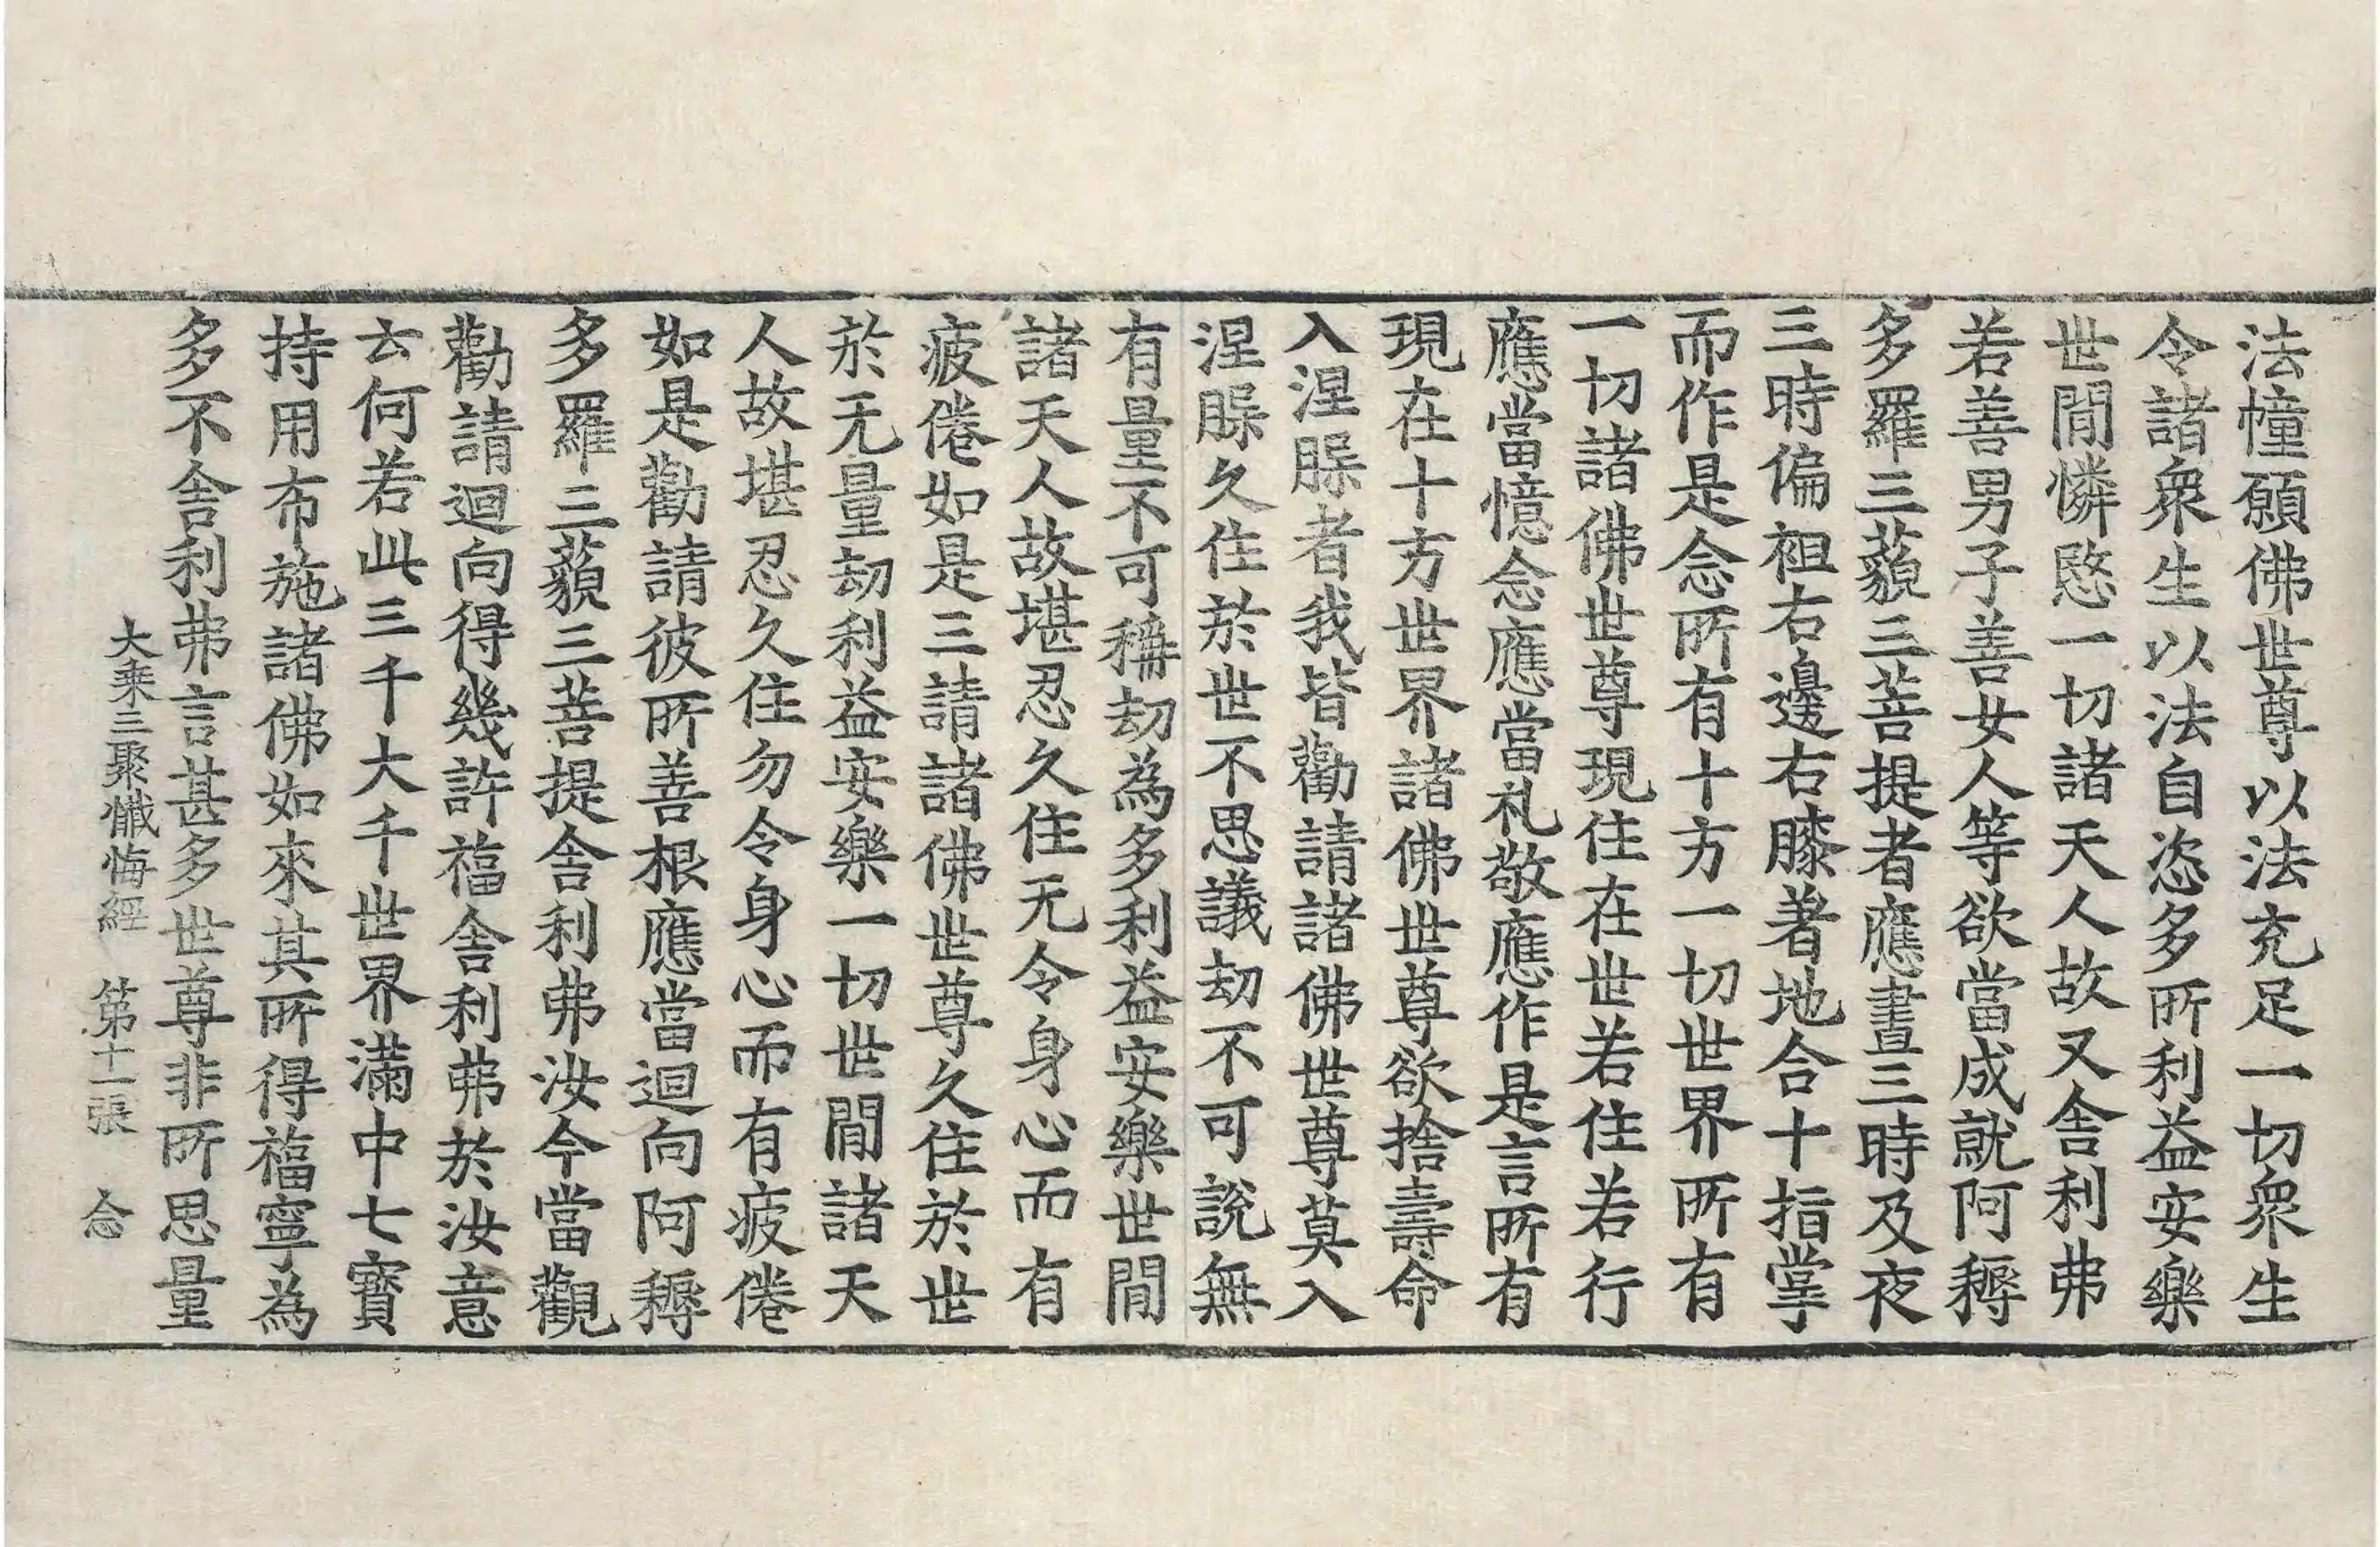 法幢願佛世尊以法充足一切衆生
令諸衆生以法自恣多所利益安樂
世間憐愍一切諸天人故又舍利弗
若善男子善女人等欲當成就阿耨
多羅三藐三菩提者應晝三時及夜
三時偏袒右邊右膝著地合十指掌
而作是念所有十方一切世界所有
一切諸佛世尊現住在世若住若行
應當憶念應當礼敬應作是言所有
現在十方世界諸佛世尊欲捨壽命
入涅槃者我皆勸請諸佛世尊莫入
涅槃久住於世不思議劫不可說無
有量不可稱劫為多利益安樂世間
諸天人故堪忍久住无令身心而有
疲倦如是三請諸佛世尊久住於世
於无量劫利益安樂一切世間諸天
人故堪忍久住勿令身心而有疲倦
如是勸請彼所善根應當迴向阿耨
多羅三藐三菩提舍利弗汝今當觀
勸請迴向得幾許福舍利弗於汝意
云何若此三千大千世界滿中七寶
持用布施諸佛如來其所得福寧為
多不舍利弗言甚多世尊非所思量
大乘三聚懺悔經 第十一張 念